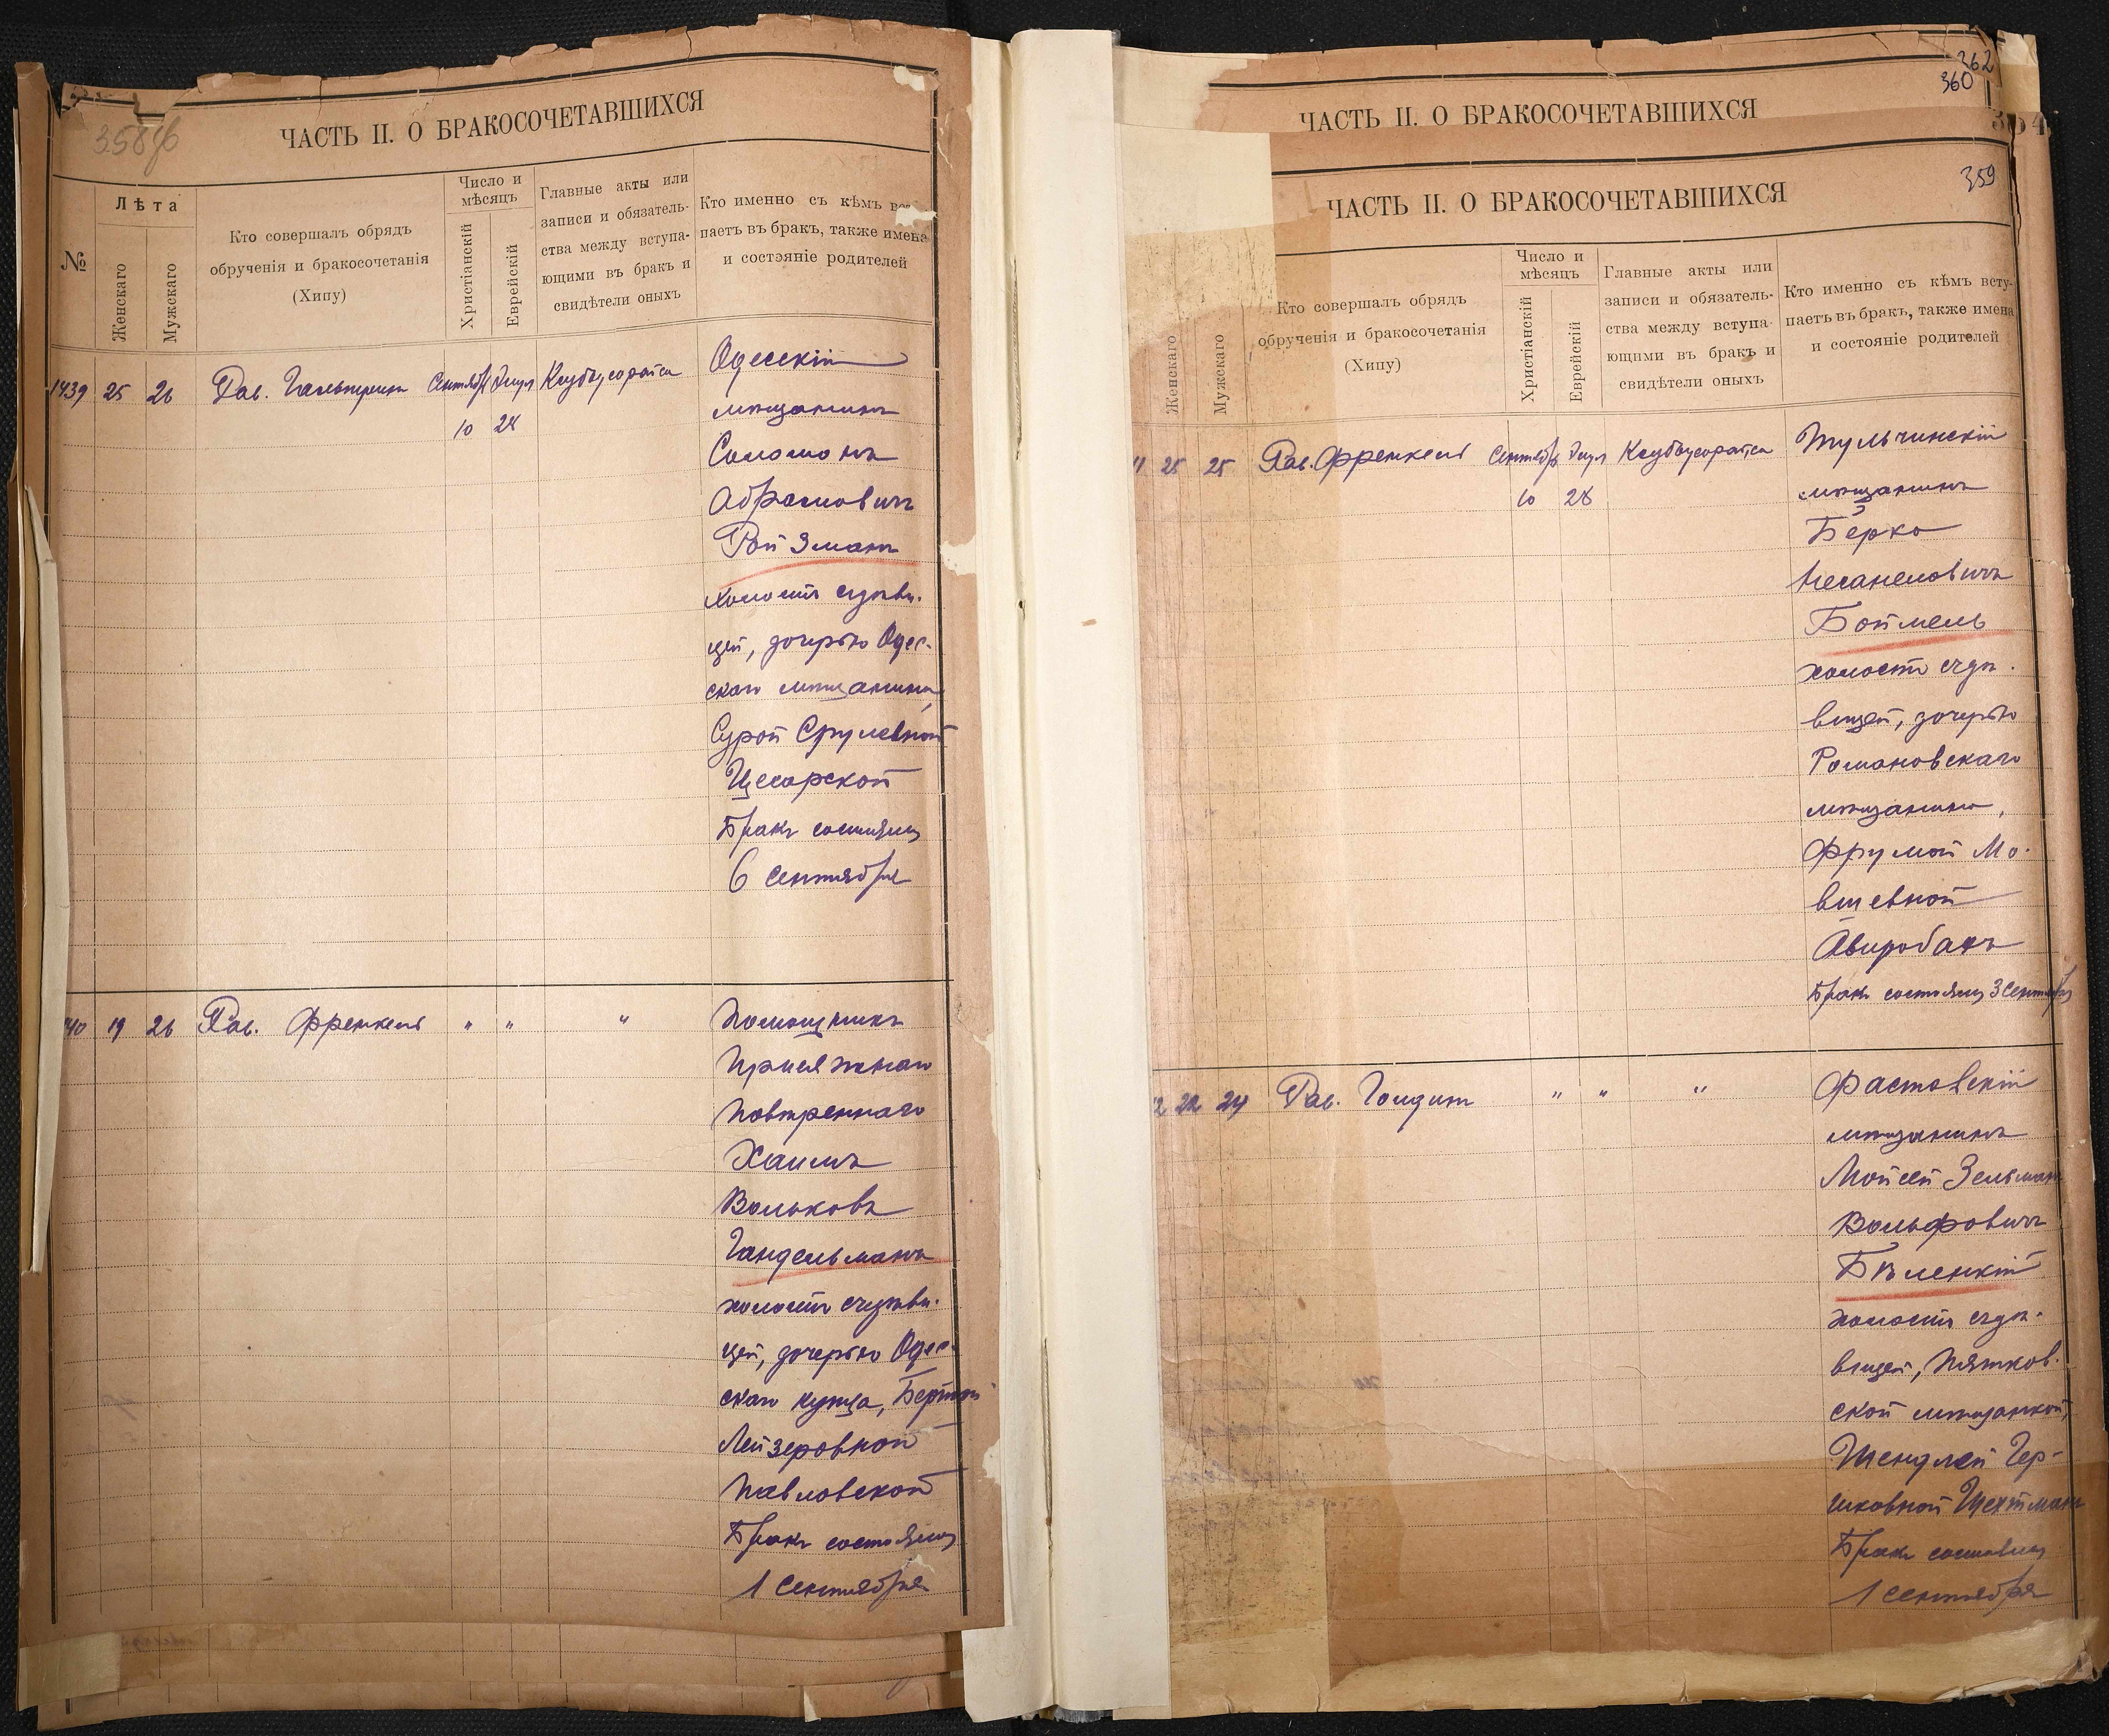 358об
ЧАСТЬ II. О БРАКОСОЧЕТАВШИХСЯ
№
Лѣта
Женскаго
Мужскаго
Кто совершалъ обрядъ
обрученія и бракосочетанія
(Хипу)
Число и
мѣсяцъ
Христіанскій
Еврейскій
Главные акты или
записи и обязатель-
ства между вступа-
ющими въ бракъ и
свидѣтели оныхъ
Кто именно съ кѣмъ
паетъ въ бракъ, также имена
и состояніе родителей
1439 25 26 Рав. Гальперинъ Сентябр Элул
10 28
Одесскій
мѣщанинъ
Соломонъ
Абрамовичъ
Ройзманъ
холостъ съ дѣви-
цей, дочерью Одес-
скаго мѣщанина,
Сурой Срулевной
Цесарской
Бракъ состоялся
6 Сентября
40 19 26 Рав. Френкель " " "
Помощникъ
Присяжнаго
Повѣреннаго
Хаимъ
Вольковъ
Гандельманъ
холостъ съ дѣви-
цей, дочерью Одес-
скаго купца, Бертой
Лейзеровной
Павловской
Бракъ состоялся
1 Сентября
362
360
ЧАСТЬ II. О БРАКОСОЧЕТАВШИХСЯ
359
ЧАСТЬ II. О БРАКОСОЧЕТАВШИХСЯ
Женскаго
Мужскаго
Кто совершалъ обрядъ
обрученія и бракосочетанія
(Хипу)
Число и
мѣсяцъ
Христіанскій
Еврейскій
Главные акты или
записи и обязатель-
ства между вступа-
ющими въ бракъ и
свидѣтели оныхъ
Кто именно съ кѣмъ всту-
паетъ въ бракъ, также имена
и состояніе родителей
25 25 Рав. Френкель Сентябр Элул
10 28
Тульчинскій
мѣщанинъ
Берко
Несанеловичъ
Боймель
холостъ съ дѣ-
вицей, дочерью
Романовскаго
мѣщанина,
Фрумой Мо-
вшевной
Авиробахъ
Бракъ состоялся 3 Сентября
2 22 24 Рав. " " "
Фастовскій
мѣщанинъ
Мойсей Зельман
Вольфовичъ
Бѣленкій
холостъ съ дѣ-
вицей, Пятков-
ской мѣщанкой,
Шендлей Гер-
шковной Шехтманъ
Бракъ состоялся
1 Сентября